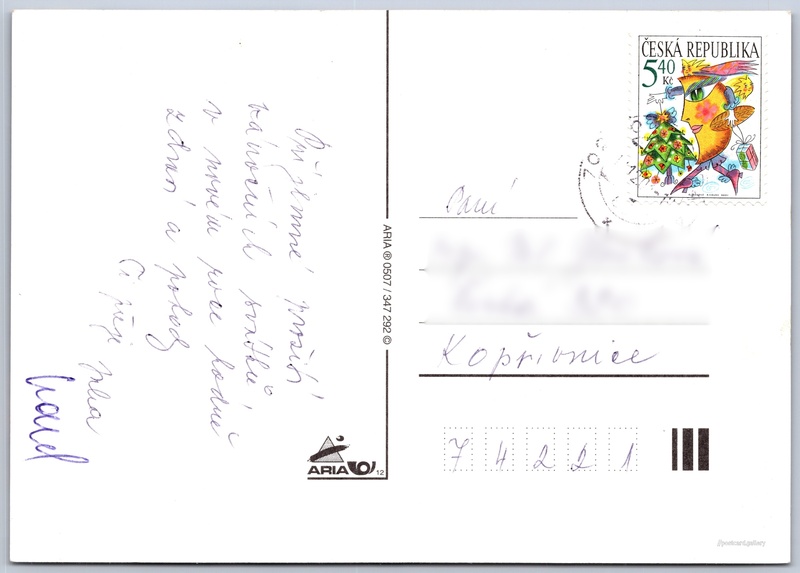 Příjemné prožití
vánočních svátků
v novém roce hodně
zdraví a pohody
Ti přeje
Karel
ARIA ® 0507 / 347 292 ©
ARIA
12
ČESKÁ REPUBLIKA
5 40
Kč
Paní
Kopřivnice
7 4 2 2 1